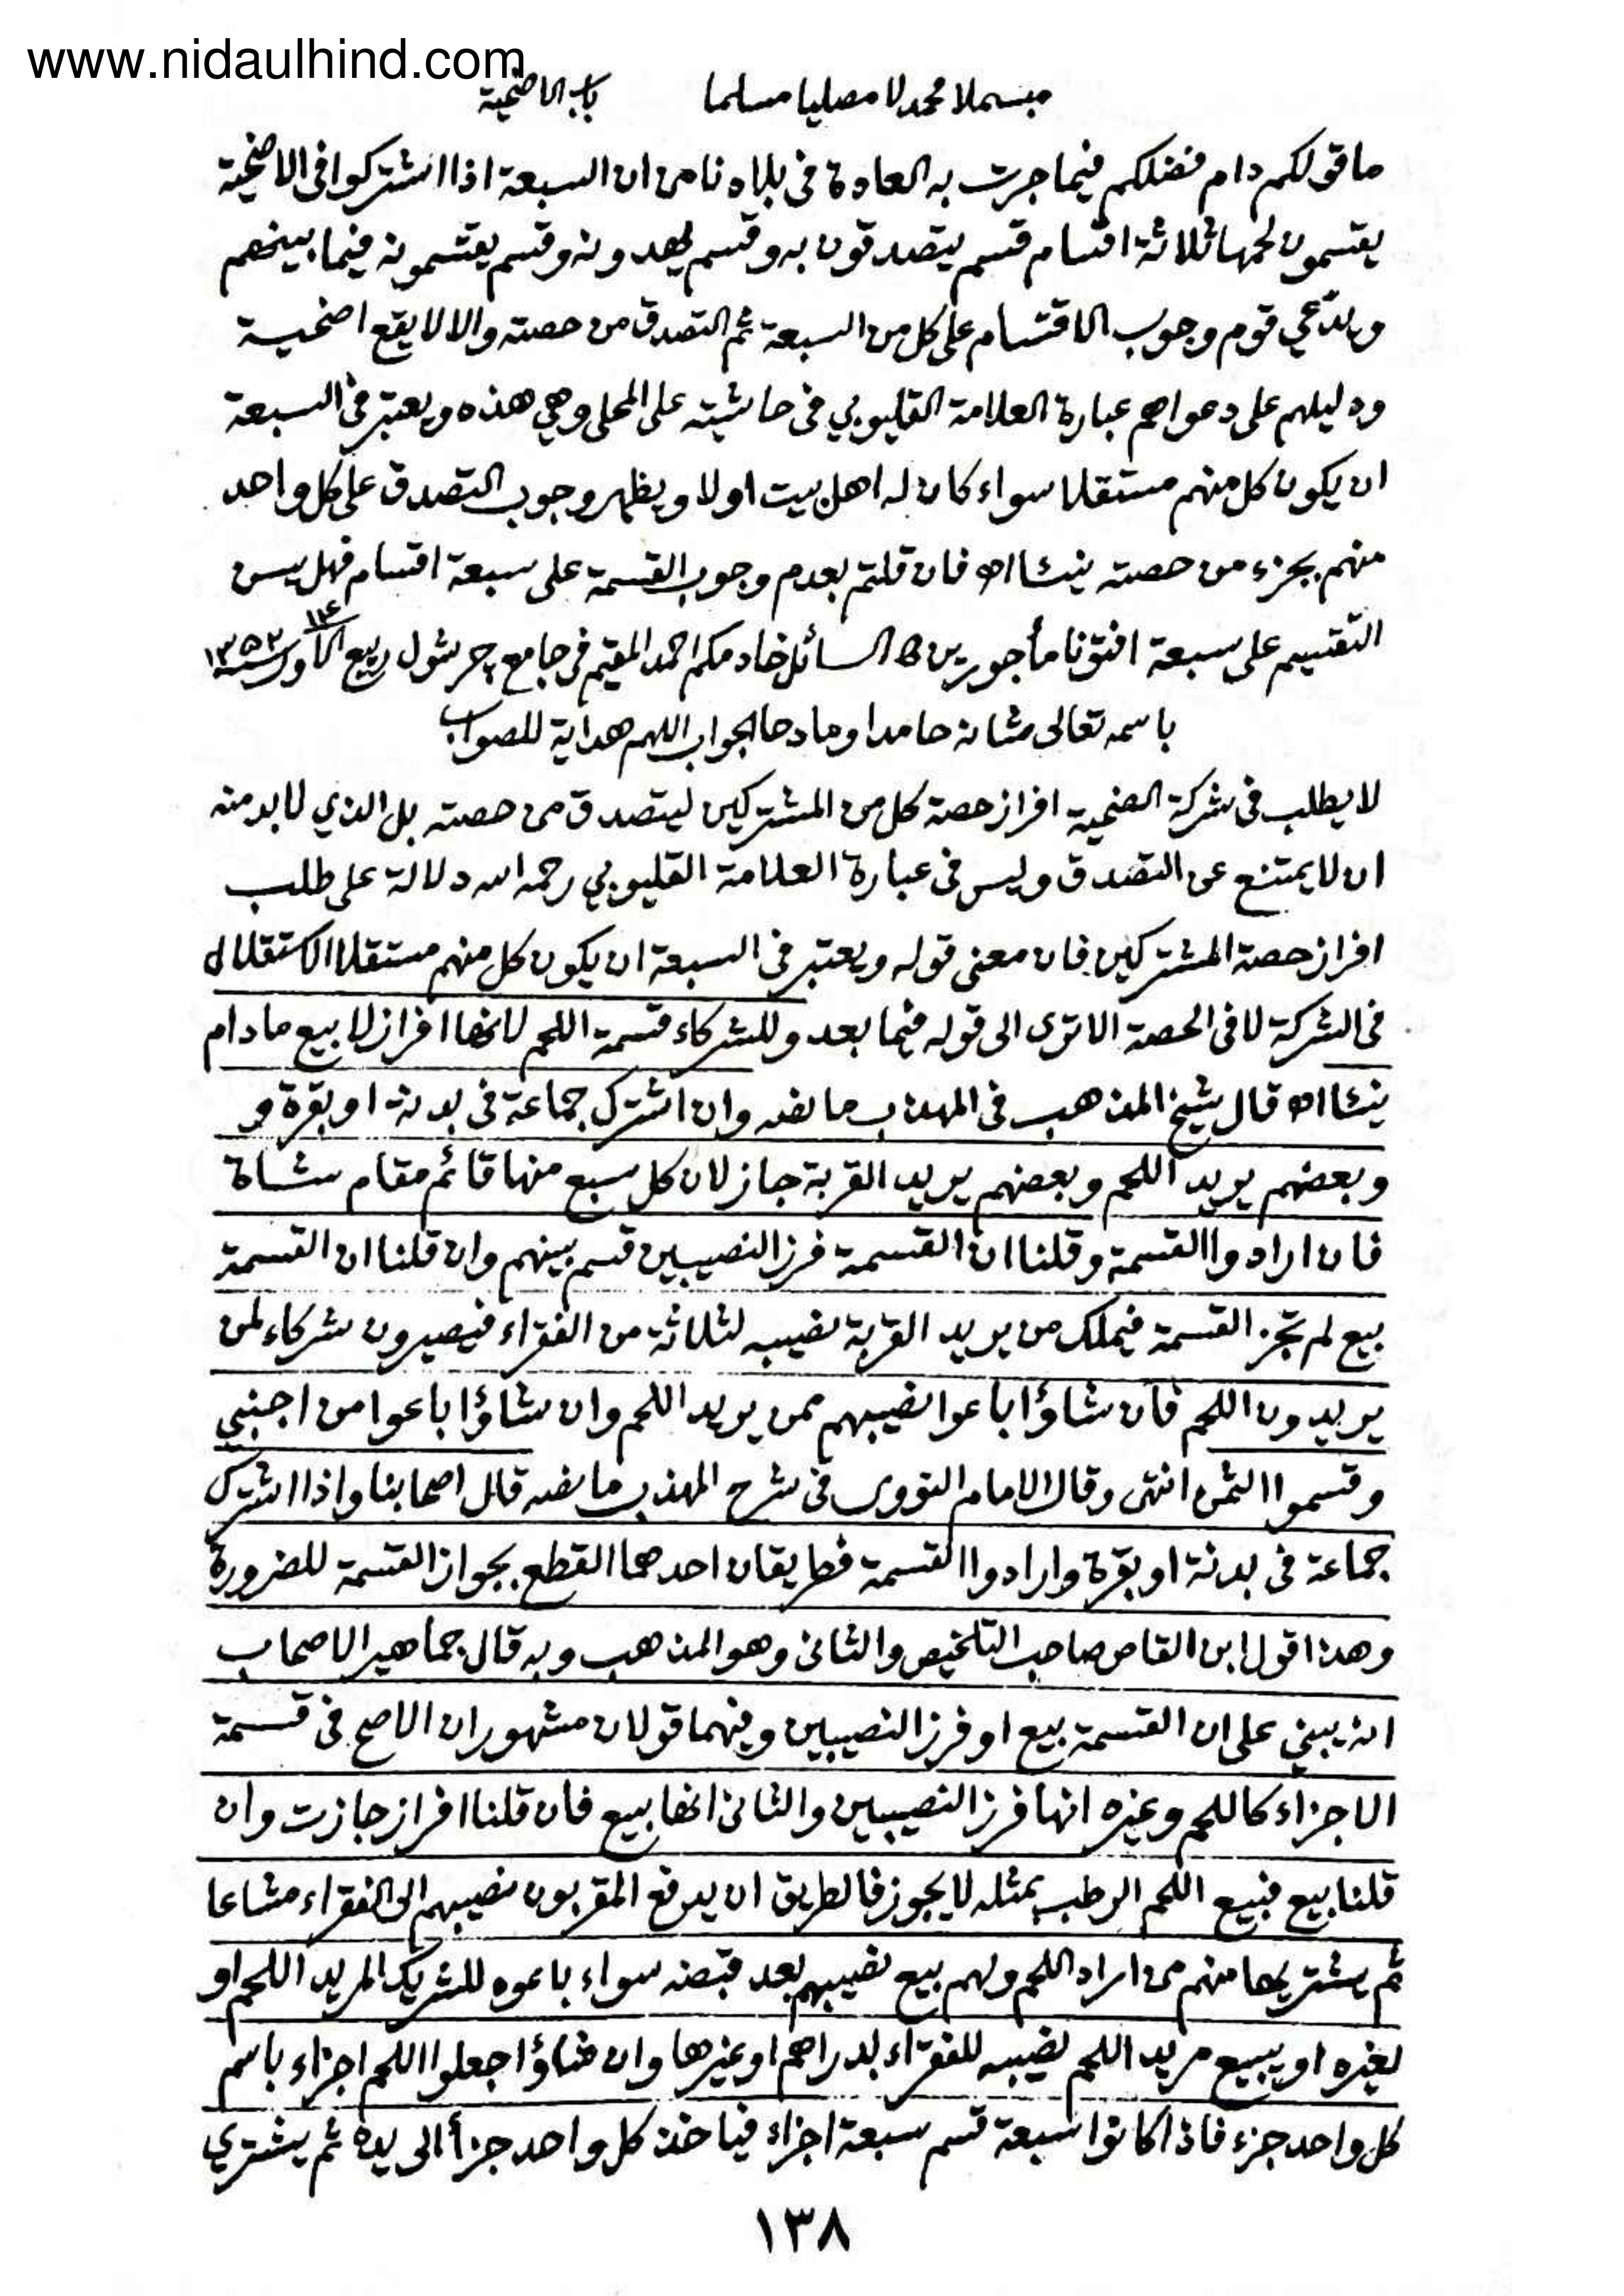 www.nidaulhind.com
مبسملا محمدلا مصليا مسلما باب الاضحية
ما قولكم دام فضلكم فيما جرت به العادة فى بلادنا من ان السبعة اذا اشتركوا فى الاضحية
يقتسمون لحمها ثلاثة اقسام قسم يتصدقون به وقسم يهدونه وقسم يقتسمونه فيما بينهم
ويدّعي قوم وجوب الاقتسام على كل من السبعة ثم التصدق من حصته والا لا يقع اضحية
ودليلهم على دعواهم عبارة العلامة القليوبي فى حاشيته على المحلى وهي هذه ويعتبر فى السبعة
ان يكون كل منهم مستقلا سواء كان له اهل بيت او لا ويظهر وجوب التصدق على كل واحد
منهم بجزء من حصته نيئا اه فان قلتم بعدم وجوب القسمة على سبعة اقسام فهل يسن
التقسيم على سبعة افتونا مأجورين السائل خادمكم احمد المقيم فى جامع ربيع الاول سنة ١٣٥٢
باسمه تعالى شانه حامدا ومادحا الجواب اللهم هداية للصواب
لا يطلب فى شركة الضحية افراز حصة كل من المشتركين ليتصدق من حصته بل الذي لا بد منه
ان لا يمتنع عن التصدق وليس فى عبارة العلامة القليوبي رحمه الله دلالة على طلب
افراز حصة المشتركين فان معنى قوله ويعتبر فى السبعة ان يكون كل منهم مستقلا الاستقلال
فى الشركة لا فى الحصة الا ترى الى قوله فيما بعد وللشركاء قسمة اللحم لانها افراز لا بيع ما دام
نيئا اه قال شيخ المذهب فى المهذب ما نصه وان اشترك جماعة فى بدنة او بقرة و
وبعضهم يريد اللحم وبعضهم يريد القربة جاز لان كل سبع منها قائم مقام شاة
فان ارادوا القسمة وقلنا ان القسمة فرز النصيبين قسم بينهم وان قلنا ان القسمة
بيع لم تجز القسمة فيملك من يريد القربة نصيبه لثلاثة من الفقراء فيصيرون شركاء لمن
يريدون اللحم فان شاؤا باعوا نصيبهم ممن يريد اللحم وان شاؤا باعوا من اجنبي
وقسموا الثمن انتهى وقال الامام النووى فى شرح المهذب ما نصه قال اصحابنا واذا اشترك
جماعة فى بدنة او بقرة وارادوا القسمة فطريقان احدهما القطع بجواز القسمة للضرورة
وهذا قول ابن القاص صاحب التلخيص والثانى وهو المذهب وبه قال جماهير الاصحاب
انه يبني على ان القسمة بيع او فرز النصيبين وفيهما قولان مشهوران الاصح فى قسمة
الاجزاء كاللحم وغيره انها فرز النصيبين والثانى انها بيع فان قلنا افراز جازت وان
قلنا بيع فبيع اللحم الرطب بمثله لا يجوز فالطريق ان يدفع المقربون نصيبهم الى الفقراء مشاعا
ثم يشتريها منهم من اراد اللحم ولهم بيع نصيبهم بعد قبضه سواء باعوه للشريك المريد اللحم او
لغيره او يبيع مريد اللحم نصيبه للفقراء بدراهم او غيرها وان شاؤا جعلوا اللحم اجزاء باسم
كل واحد جزء فاذا كانوا سبعة قسم سبعة اجزاء فياخذ كل واحد جزأ الى يده ثم يشتري
١٣٨